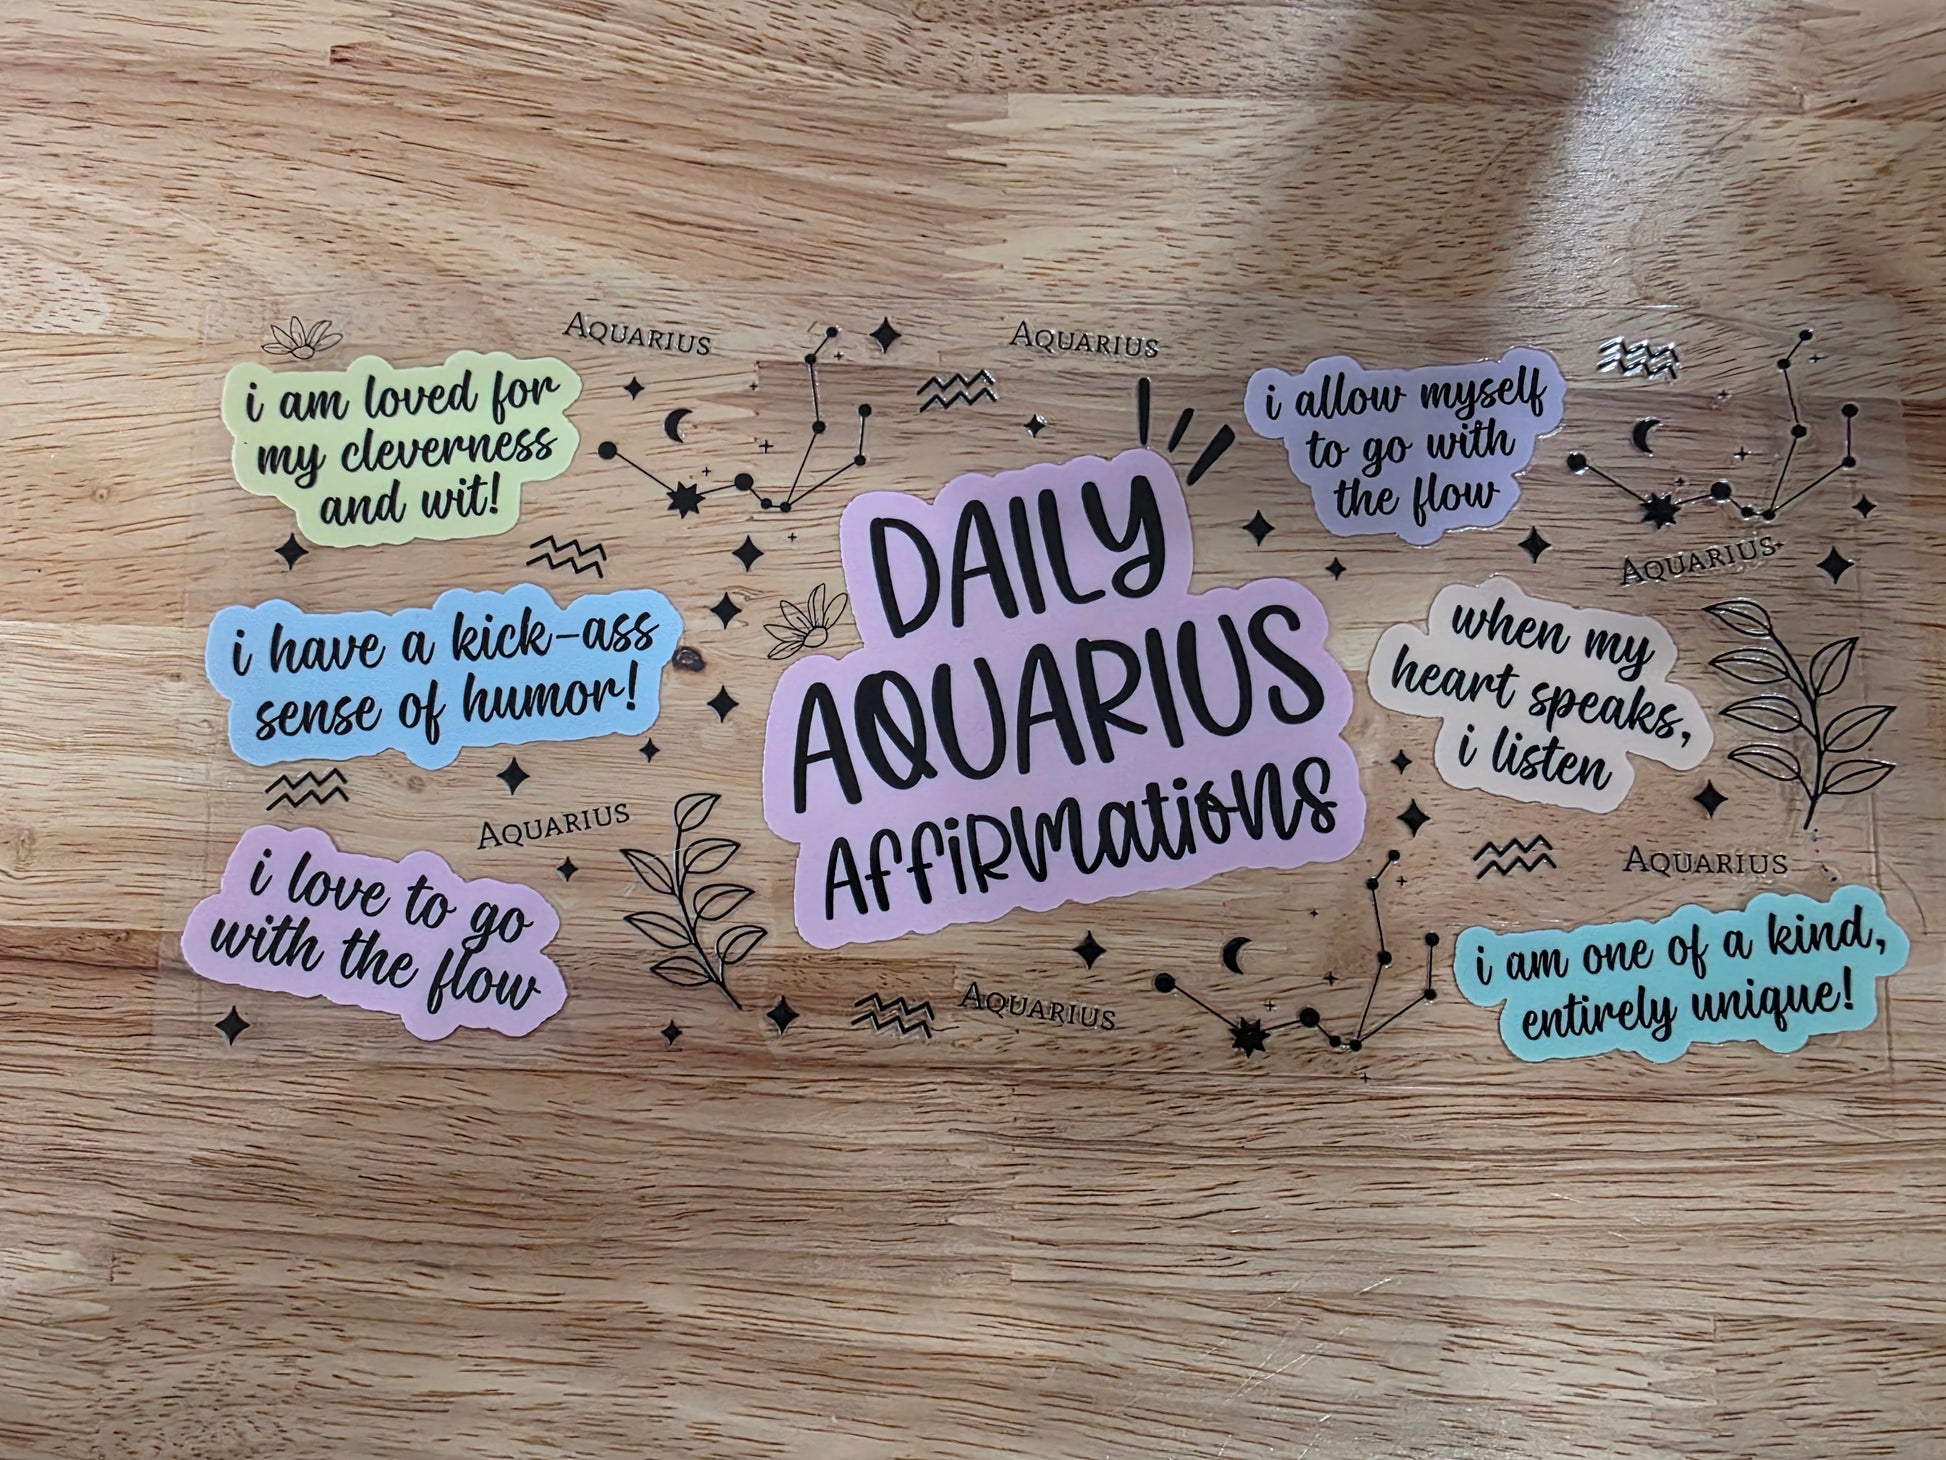 Aquarius
Aquarius
i am loved for
my cleverness
and wit!
i allow myself
to go with
the flow
DAILY
AQUARIUS
Affirmations
Aquarius
i have a kick-ass
sense of humor!
when my
heart speaks,
i listen
Aquarius
Aquarius
i love to go
with the flow
i am one of a kind,
entirely unique!
Aquarius